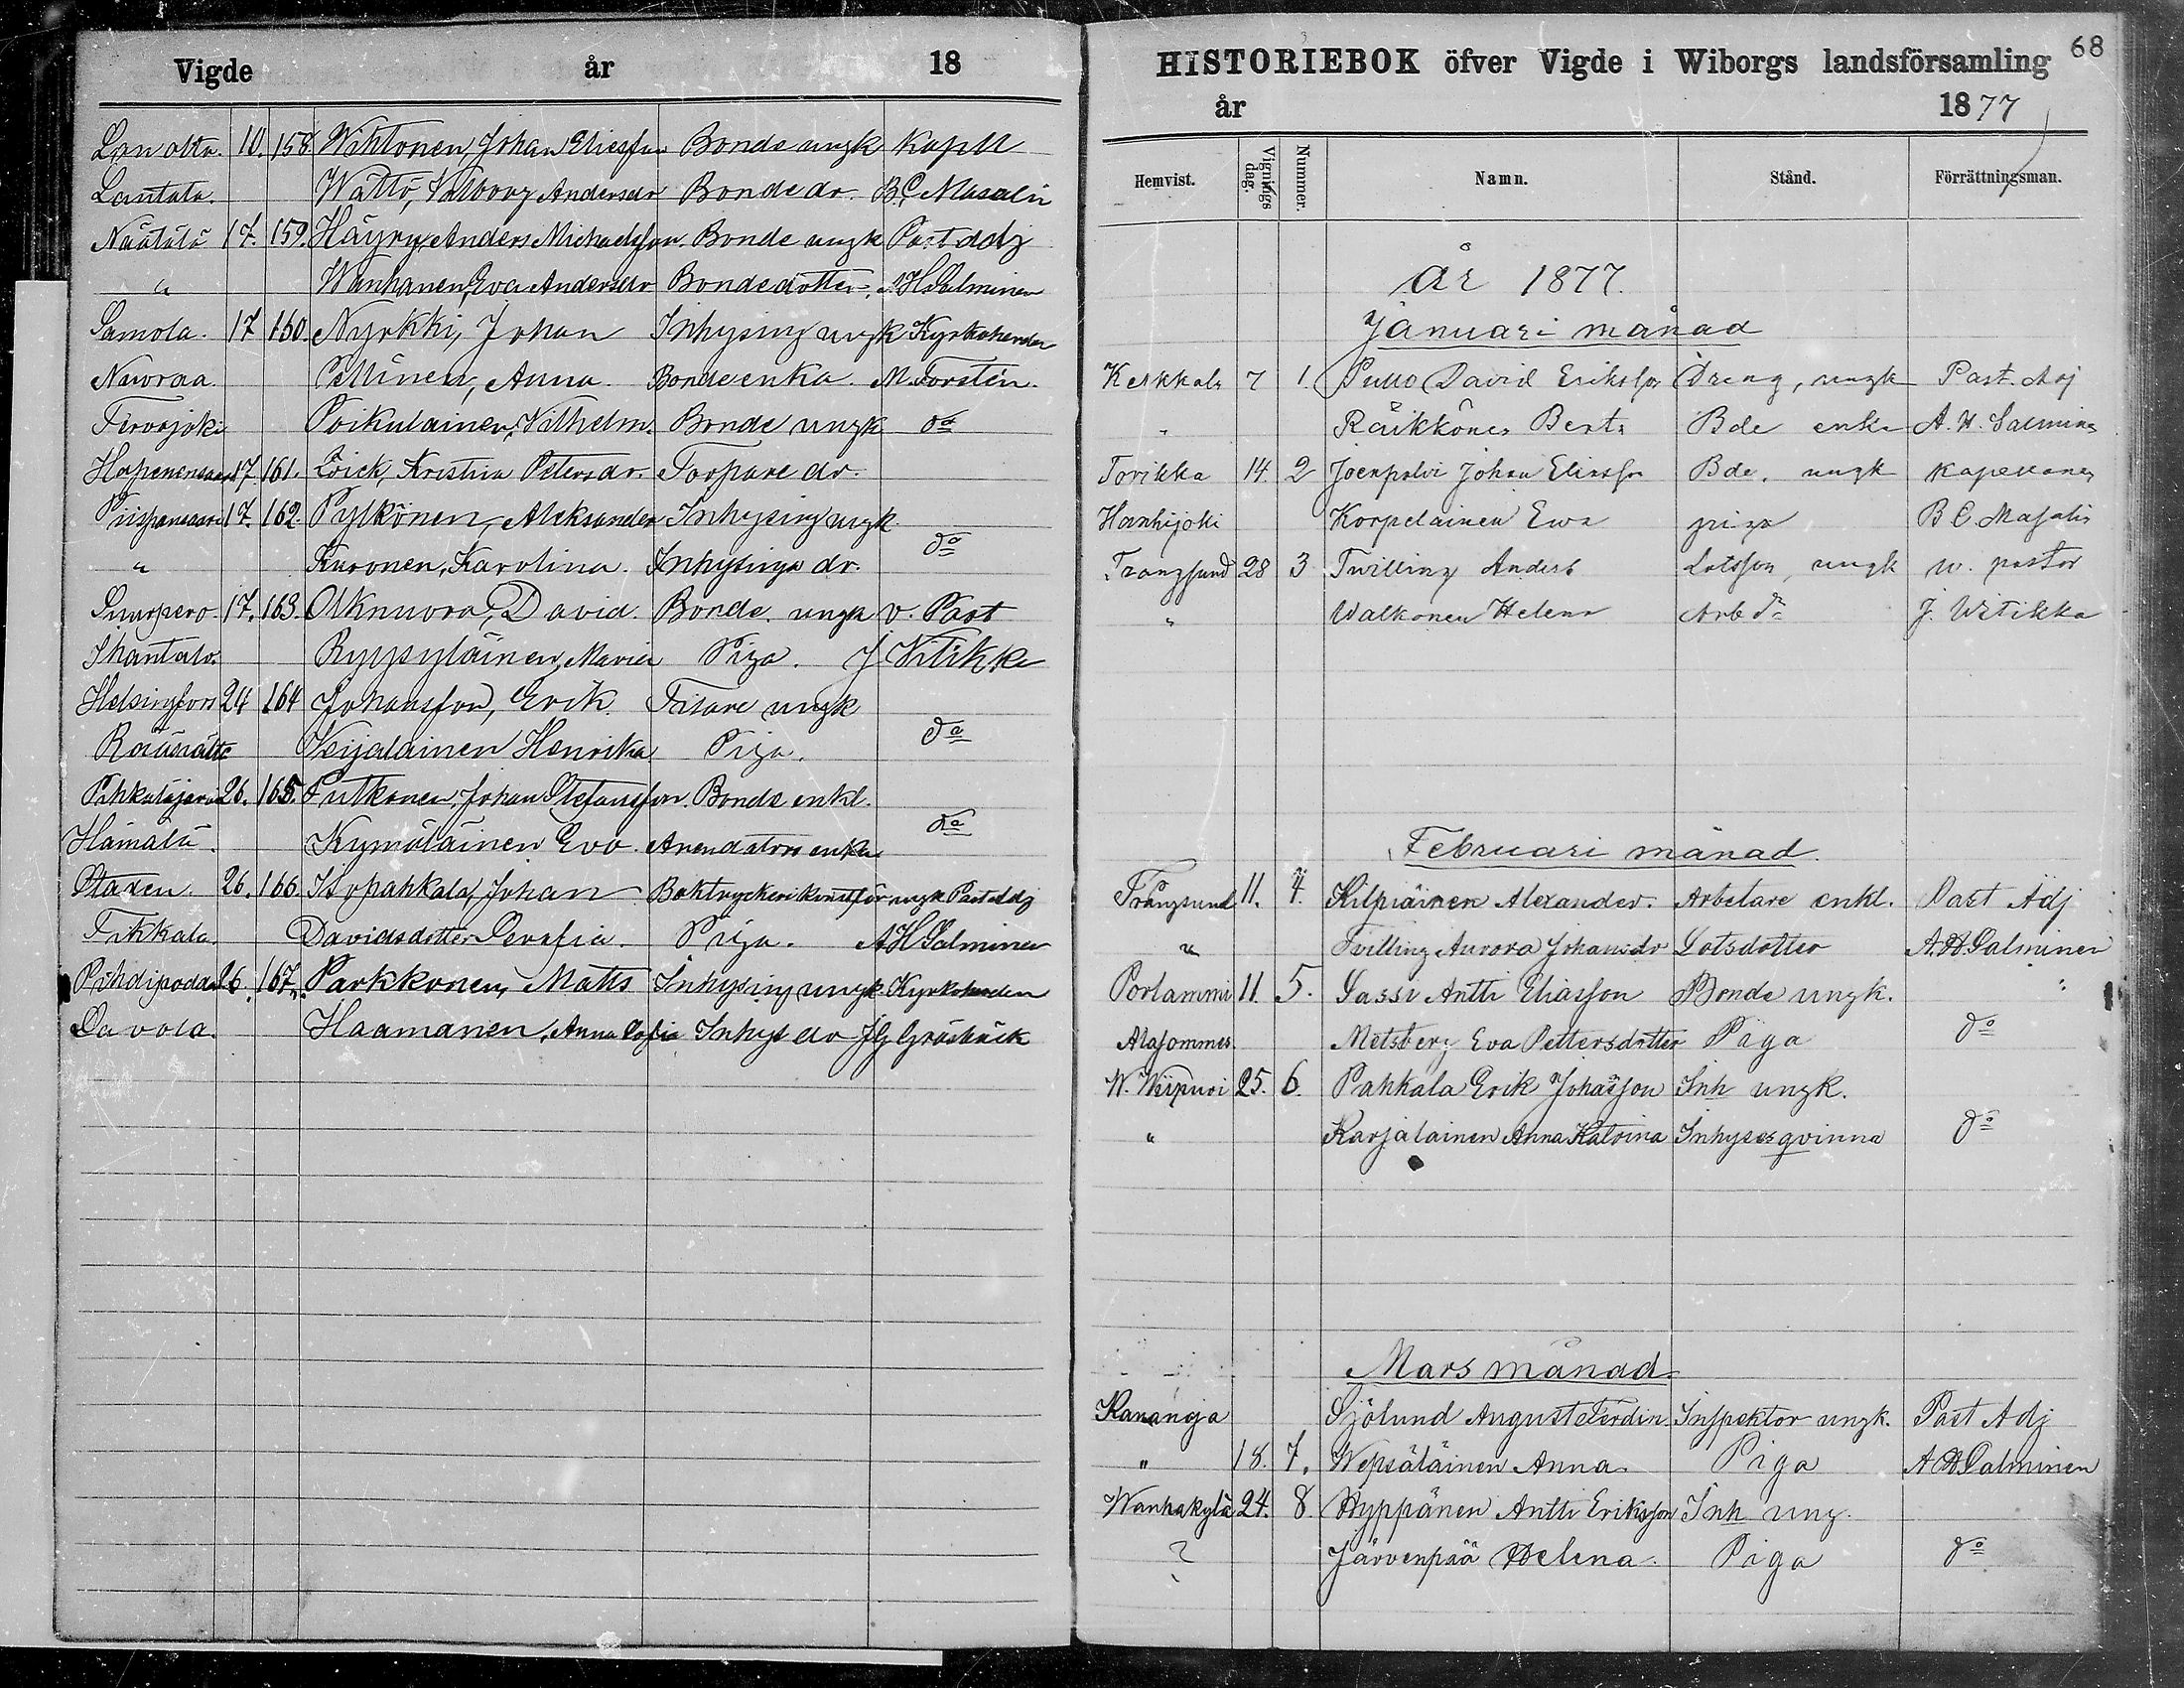 Vigde år 18
10. 158. Wihtonen, Johan Eliesson Bonde ungk Kapll
Lantala. Wättö, Valborg Andersdr Bonde dr. B.C. Masalin
Näätälä 17. 159. Häyry, Anders Michaelsson. Bonde ungk Past adj
" Wanhanen, Eva Andersdr Bondedotter, A H Salminen
Samola. 17 160. Nyrkki, Johan Inhysing ungk Kyrkoherden
Nuoraa. Pellinen, Anna. Bonde enka. M. Forstén.
Tervajoki Poikulainen, Vilhelm. Bonde ungk do
17. 161. Kristina Petersdr. Torpare dr.
17. 162. Pylkönen, Aleksander Inhysing ungk.
" Kuronen, Karolina. Inhysings dr. do
Suurpero 17. 163. Aknuora, David. Bonde. ungk v. Past
Ihantala. Ryysyläinen, Maria Piga. J Vitikka
Helsingfors 24 164 Johansson, Erik Filare ungk
Veijalainen Henrika Piga. do
26. 165. Putkonen, Johan Stefansson. Bonde enkl.
Hämälä. Kymäläinen Eva. Arendators enka do
Staden. 26. 166. Isopahkala, Johan Boktryckerikonstför ungk Past adj
Tikkala. Davidsdotter Serafia. Piga. A H Salminen
26. 167. Parkkonen, Matts Inhysing ungk. Kyrkoherden
Davola. Haamanen, Anna Sofia Inhys dr J G Gråsbäck
68
HISTORIEBOK öfver Vigde i Wiborgs landsförsamling
år 1877
Hemvist. Vignings dag. Nummer. Namn. Stånd. Förrättningsman.
År 1877.
Januari månad
Kerkkala 7 1. Pullo David Eriksson Dreng, ungk Past. Adj
" Räikkönen Berta Bde enka A. H. Salminen
Torikka 14. 2 Joenpolvi Johan Eliasson Bde. ungk Kapellanen
Hanhijoki Korpelainen Ewa piga B C Masalin
Trangsund 28 3 Twilling Anders Lotsson, ungk w. pastor
" Walkonen Helena Arb dr J. Witikka
Februari månad.
Trångsund 11. 4. Kilpiäinen Alexander. Arbetare enkl. Past Adj
" Tvilling Aurora Johansdr Lotsdotter A. H. Salminen
Porlammi 11. 5. Sassi Antti Eliasson Bonde ungk. "
Alasommes. Metsberg Eva Pettersdotter Piga do
W. Wiipuri 25. 6. Pahkala Erik Johasson Inh ungk.
" Karjalainen Anna Katrina Inhysesqvinna do
Mars månad.
Kananoja Sjölund August Ferdin. Inspektor ungk. Past Adj
" 18. 7. Wepsäläinen Anna Piga A H Salminen
Wanhakylä 24. 8. Hyppänen Antti Eriksson Inh ung.
? Järvenpää Helena. Piga do